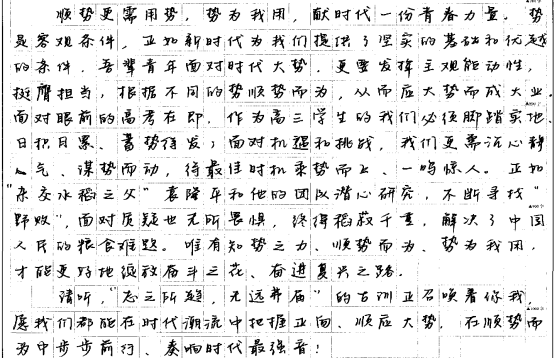 顺势更需用势，势为我用，献时代一份青春力量。势
是客观条件，正如新时代为我们提供了坚实的基础和优越
的条件。吾辈青年面对时代大势，更要发挥主观能动性，
挺膺担当，根据不同的势顺势而为，从而应大势而成大业。
面对眼前的高考在即，作为高三学生的我们必须脚踏实地、
日积月累、蓄势待发；面对机遇和挑战，我们更需沉心静
气、谋势而动，待最佳时机乘势而上、一鸣惊人。正如
"杂交水稻之父"袁隆平和他的团队潜心研究，不断寻找"
野败"，面对质疑也无所畏惧，终得稻菽千重，解决了中国
人民的粮食难题。唯有知势之力、顺势而为、势为我用，
才能更好地绽放奋斗之花、奋进复兴之路。
请听，"志之所趋，无远弗届"的古训正召唤着你我，
愿我们都能在时代潮流中把握正向、顺应大势，在顺势而
为中步步前行、奏响时代最强音！